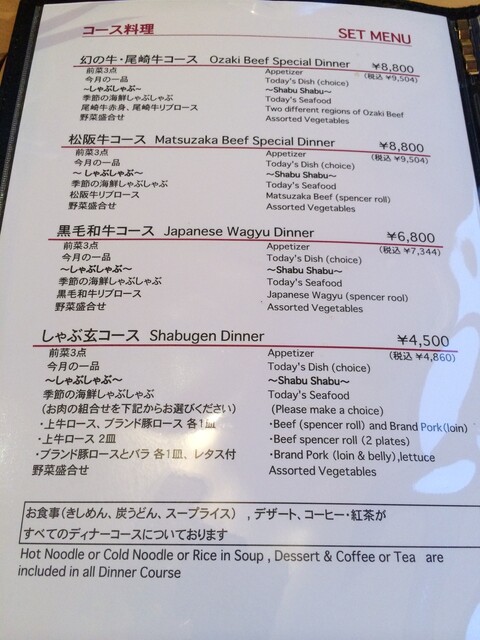 コース料理 SET MENU
幻の牛・尾崎牛コース Ozaki Beef Special Dinner ¥8,800
前菜3点 Appetizer (税込 ¥9,504)
今月の一品 Today's Dish (choice)
～しゃぶしゃぶ～ ～Shabu Shabu～
季節の海鮮しゃぶしゃぶ Today's Seafood
尾崎牛赤身、尾崎牛リブロース Two different regions of Ozaki Beef
野菜盛合せ Assorted Vegetables
松阪牛コース Matsuzaka Beef Special Dinner ¥8,800
前菜3点 Appetizer (税込 ¥9,504)
今月の一品 Today's Dish (choice)
～しゃぶしゃぶ～ ～Shabu Shabu～
季節の海鮮しゃぶしゃぶ Today's Seafood
松阪牛リブロース Matsuzaka Beef (spencer roll)
野菜盛合せ Assorted Vegetables
黒毛和牛コース Japanese Wagyu Dinner ¥6,800
前菜3点 Appetizer (税込 ¥7,344)
今月の一品 Today's Dish (choice)
～しゃぶしゃぶ～ ～Shabu Shabu～
季節の海鮮しゃぶしゃぶ Today's Seafood
黒毛和牛リブロース Japanese Wagyu (spencer rool)
野菜盛合せ Assorted Vegetables
しゃぶ玄コース Shabugen Dinner ¥4,500
前菜3点 Appetizer (税込 ¥4,860)
今月の一品 Today's Dish (choice)
～しゃぶしゃぶ～ ～Shabu Shabu～
季節の海鮮しゃぶしゃぶ Today's Seafood
(お肉の組合せを下記からお選びください) (Please make a choice)
・上牛ロース、ブランド豚ロース 各1皿 ・Beef (spencer roll) and Brand Pork(loin)
・上牛ロース 2皿 ・Beef spencer roll (2 plates)
・ブランド豚ロースとバラ 各1皿、レタス付 ・Brand Pork (loin & belly),lettuce
野菜盛合せ Assorted Vegetables
お食事(きしめん、炭うどん、スープライス) ,デザート、コーヒー・紅茶が
すべてのディナーコースについております
Hot Noodle or Cold Noodle or Rice in Soup , Dessert & Coffee or Tea are
included in all Dinner Course